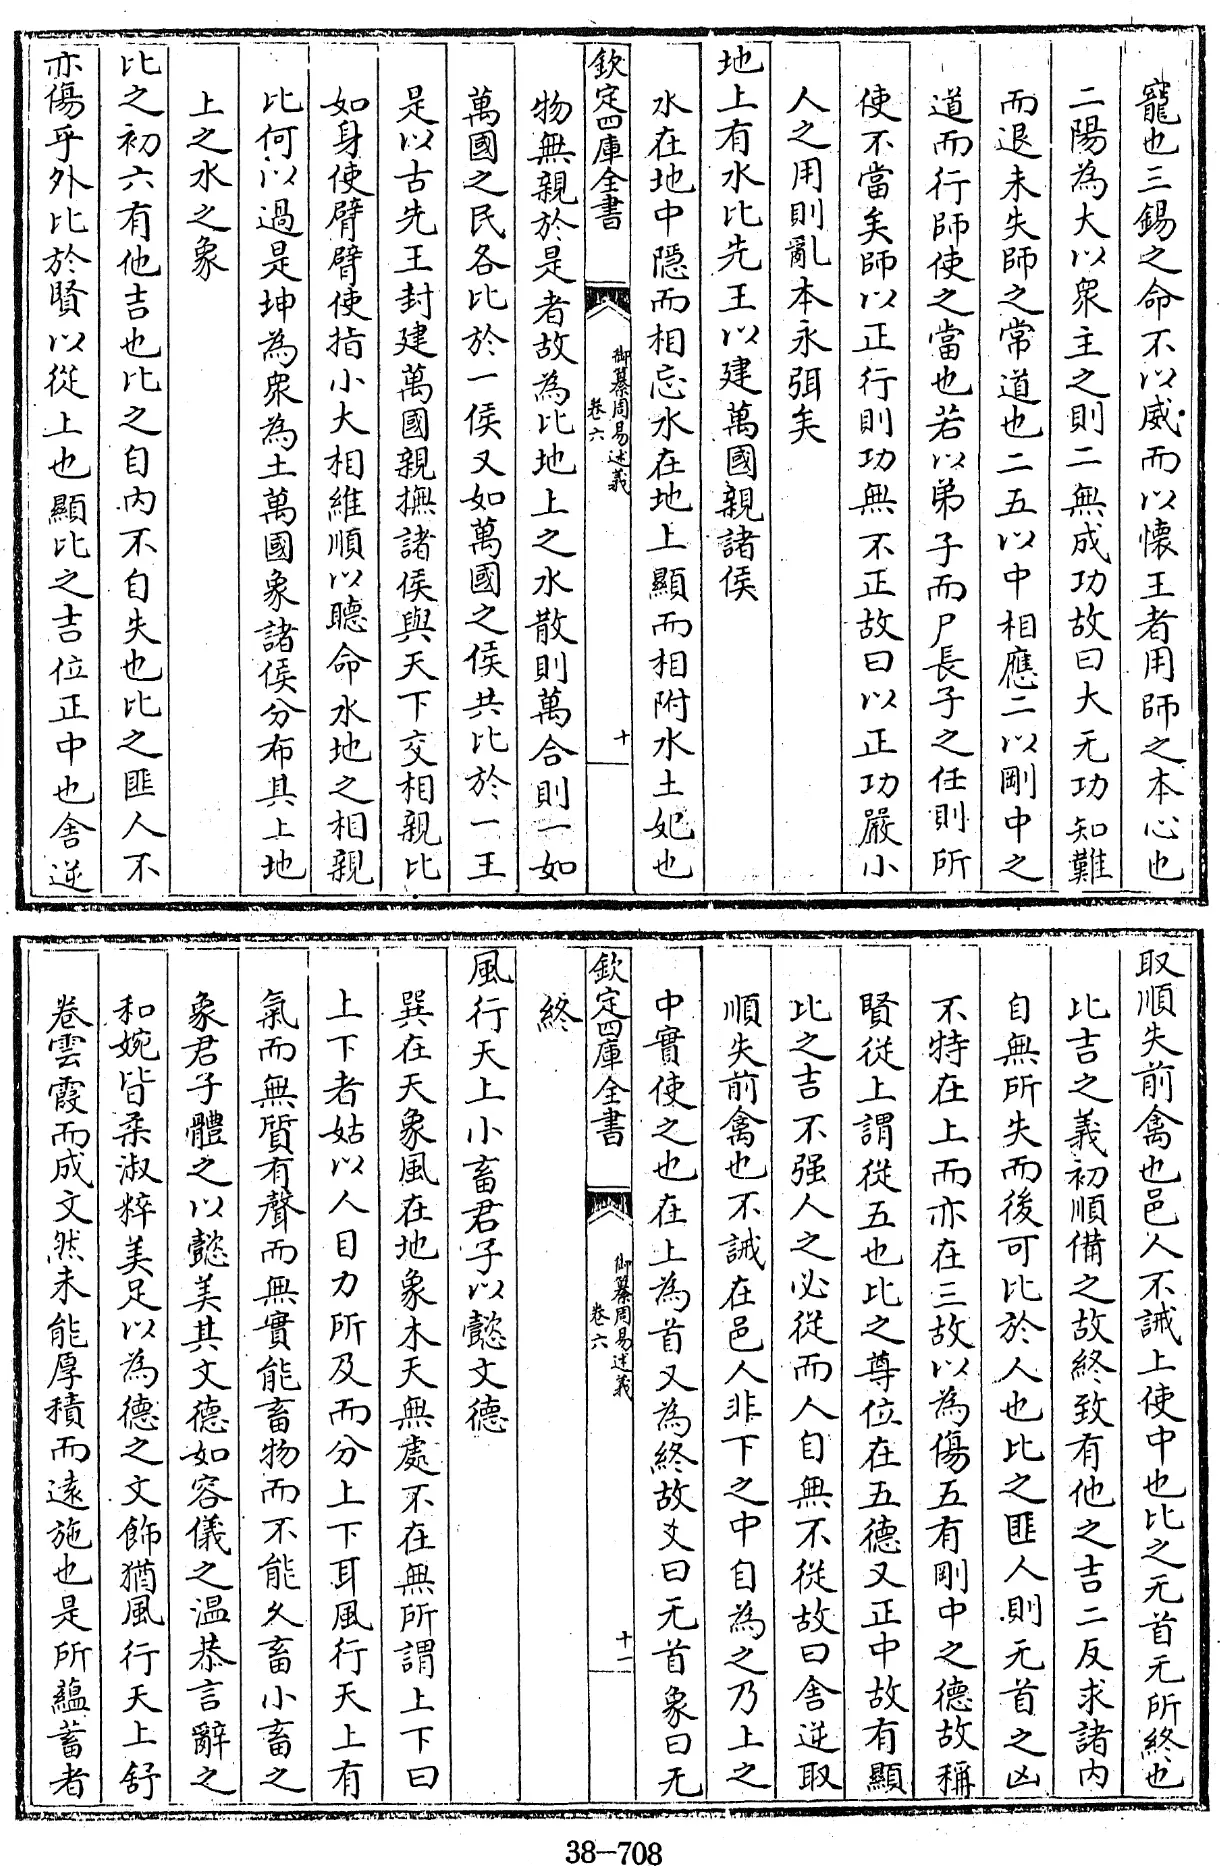 寵也三錫之命不以威而以懷王者用師之本心也
二陽為大以衆主之則二無成功故曰大无功知難
而退未失師之常道也二五以中相應二以剛中之
道而行師使之當也若以弟子而尸長子之任則所
使不當矣師以正行則功無不正故曰以正功嚴小
人之用則亂本永弭矣
地上有水比先王以建萬國親諸侯
水在地中隱而相忘水在地上顯而相附水土妃也
欽定四庫全書
御纂周易述義
卷六
十
物無親於是者故為比地上之水散則萬合則一如
萬國之民各比於一侯又如萬國之侯共比於一王
是以古先王封建萬國親撫諸侯與天下交相親比
如身使臂臂使指小大相維順以聽命水地之相親
比何以過是坤為衆為土萬國象諸侯分布其上地
上之水之象
比之初六有他吉也比之自内不自失也比之匪人不
亦傷乎外比於賢以從上也顯比之吉位正中也舍逆
取順失前禽也邑人不誡上使中也比之无首无所終也
比吉之義初順備之故終致有他之吉二反求諸内
自無所失而後可比於人也比之匪人則无首之凶
不特在上而亦在三故以為傷五有剛中之德故稱
賢從上謂從五也比之尊位在五德又正中故有顯
比之吉不强人之必從而人自無不從故曰舍逆取
順失前禽也不誡在邑人非下之中自為之乃上之
中實使之也在上為首又為終故爻曰无首象曰无
欽定四庫全書
御纂周易述義
卷六
十一
終
風行天上小畜君子以懿文德
巽在天象風在地象木天無處不在無所謂上下曰
上下者姑以人目力所及而分上下耳風行天上有
氣而無質有聲而無實能畜物而不能久畜小畜之
象君子體之以懿美其文德如容儀之温恭言辭之
和婉皆柔淑粹美足以為德之文飾猶風行天上舒
卷雲霞而成文然未能厚積而遠施也是所蘊蓄者
38-708